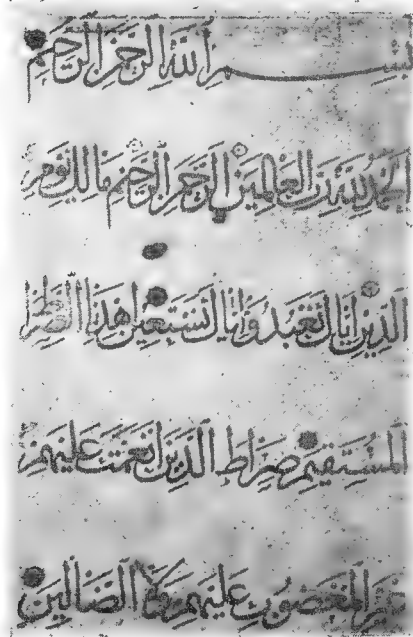 بسم الله الرحمن الرحيم
الحمد لله رب العالمين الرحمن الرحيم مالك يوم
الدين إياك نعبد وإياك نستعين اهدنا الصراط
المستقيم صراط الذين أنعمت عليهم
غير المغضوب عليهم ولا الضالين